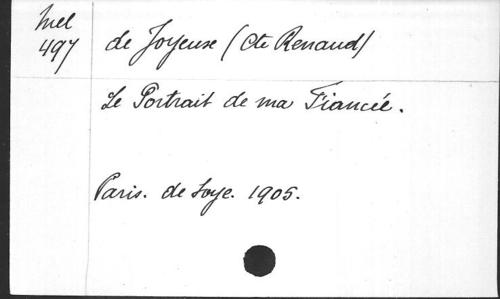 Mel
497
de Joyeuse (Cte Renaud)
Le Portrait de ma Fiancée.
Paris. de Soye. 1905.